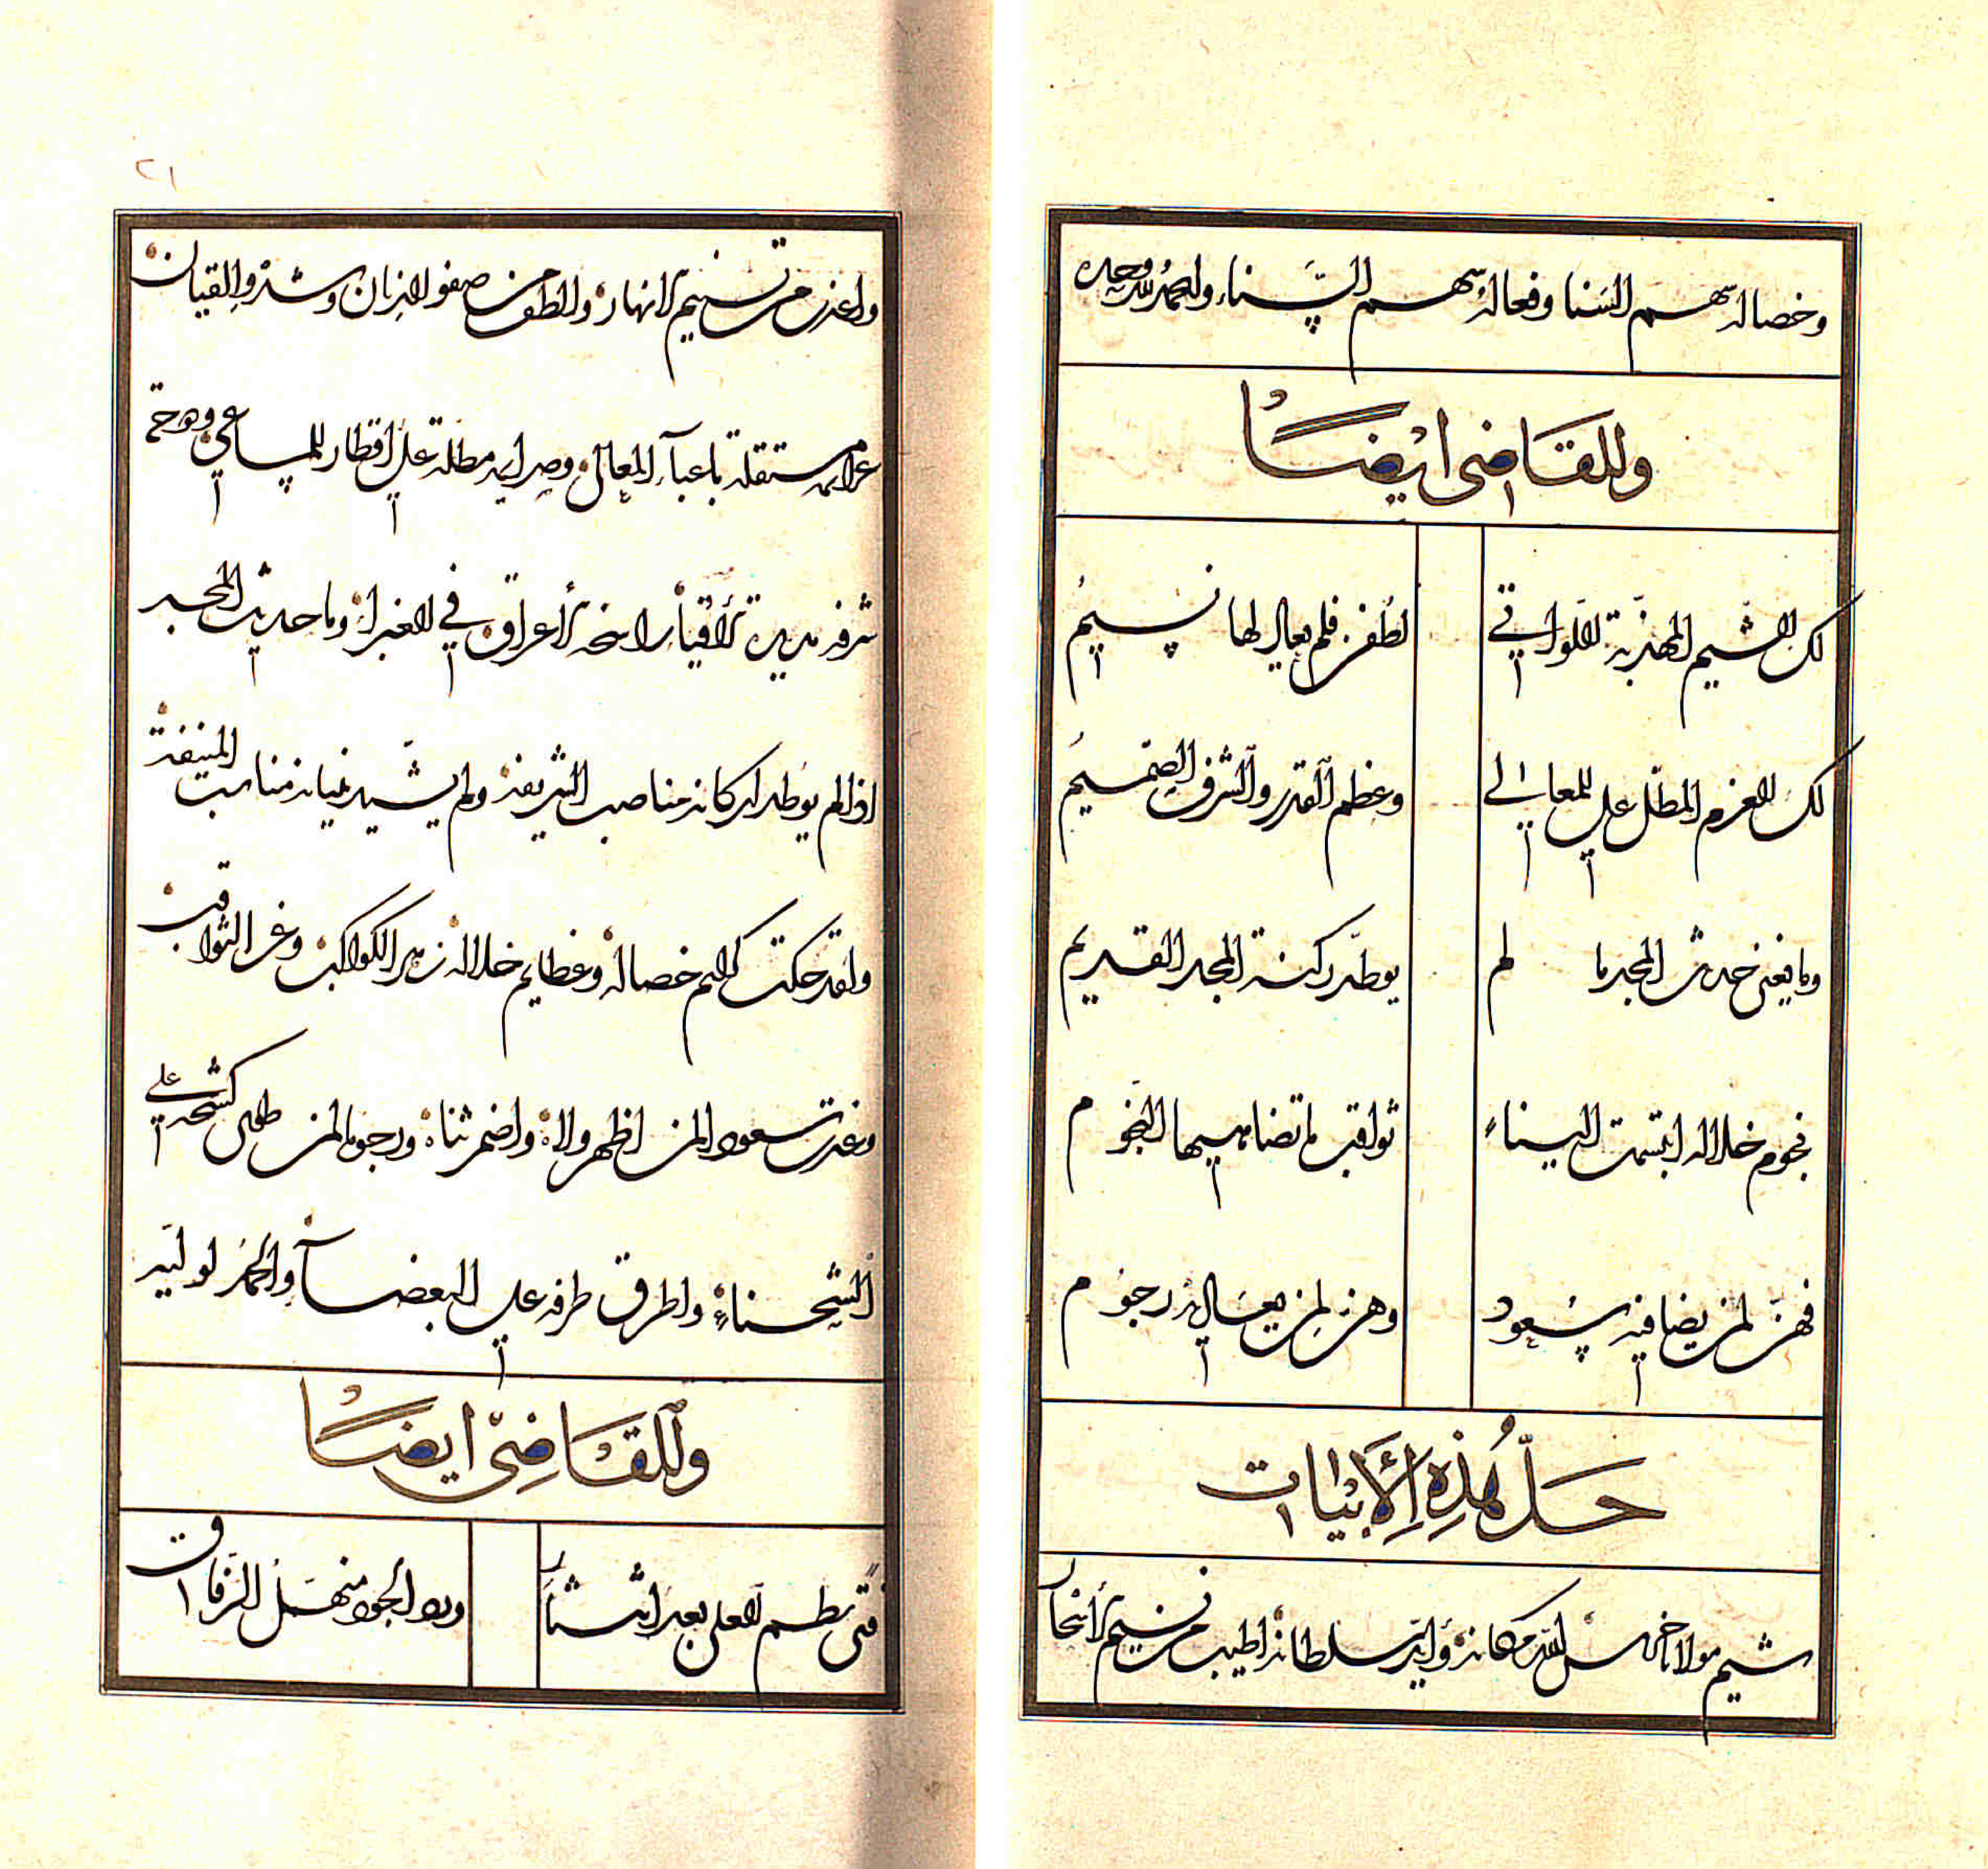 وخصاله سهم السنا وفعاله سهم السناء والحمد لله وحده
وللقاضى ايضاً
لك الشيم المهذبة اللواتي لطفن فلم يعادلها نسيم
لك العزم المطل على المعالي وعظم القدر والشرف الصميم
وما يغني حديث المجد ما لم يوطد ركنه المجد القديم
نجوم خلاله ابتسمت الينا ثواقب لا تضاهيها النجوم
فهن لمن يصافيه سعود وهن لمن يعاديه رجوم
حل هذه الأبيات
شيم مولانا حرس الله مكانه وأيد سلطانه اطيب من نسيم الأسحار
٢١
واعذب من تسنيم الانهار والطف من صفو الدنان وشدو القيان
عزايمه مستقلة باعباء المعالي وصرايمه مطلة على اقطار المساعي ودوحة
شرفه مديدة الأفياء راسخة الأعراق في الغبراء وما حديث المجد
اذا لم يوطد اركانه مناصب الشريفة ولم يشيد بنيانه مناسب المنيفة
ولقد حكت كرايم خصاله وعظايم خلاله زهر الكواكب وغر الثواقب
وغدت سعودا لمن اظهر ولاه واضمر ثناه ورجوما لمن طوى كشحه على
الشحناء واطرق طرفه على البغضاء والحمد لوليه
وللقاضى ايضاً
فتى نظم العلى بعد انتثار ورد الجود منهل